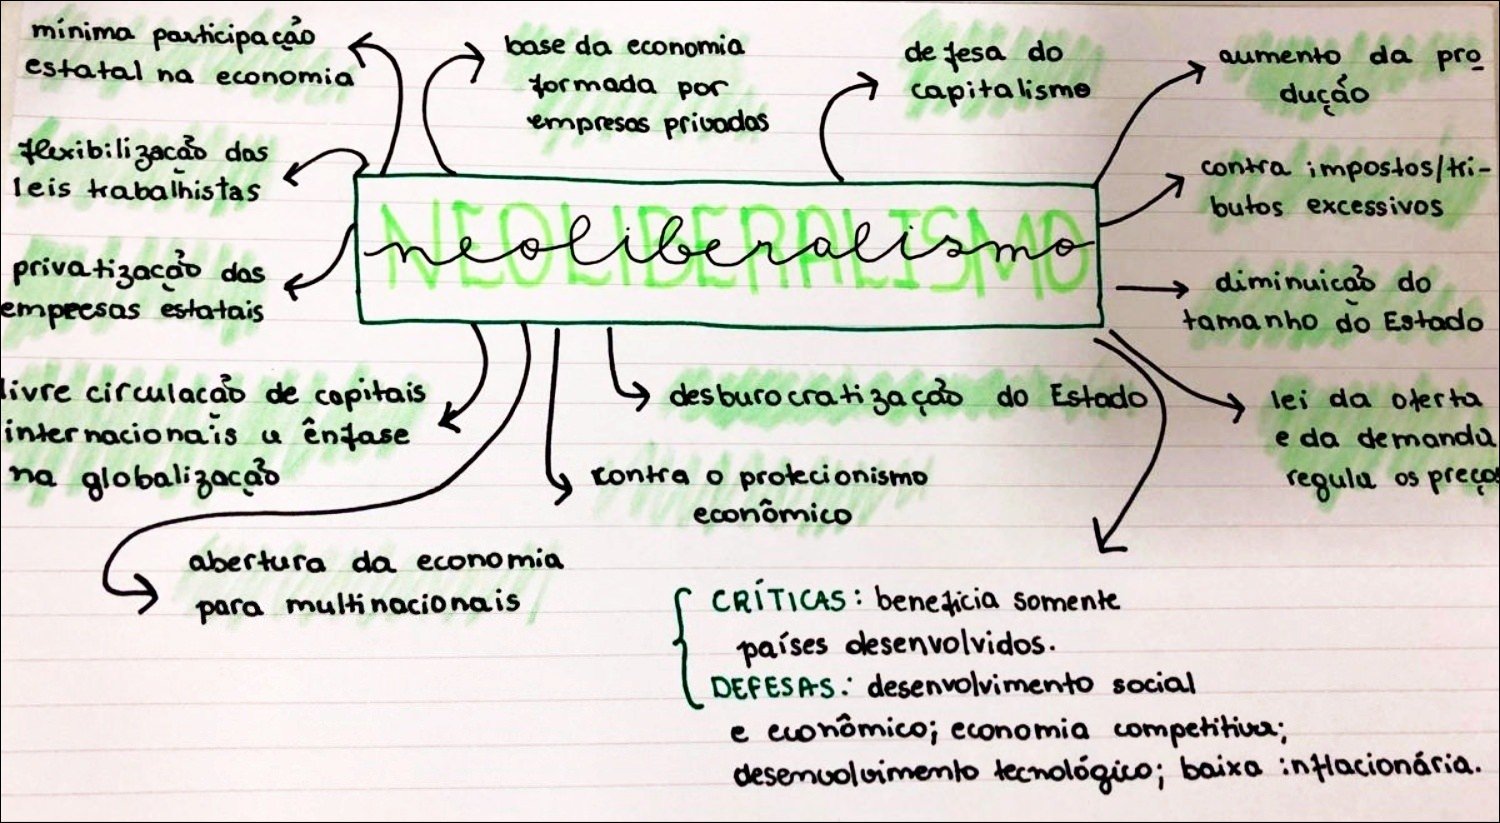 mínima participação
estatal na economia
base da economia
formada por
empresas privadas
defesa do
capitalismo
aumento da pro
dução
flexibilização das
leis trabalhistas
contra impostos/tri-
butos excessivos
NEOLIBERALISMO
neoliberalismo
privatização das
empresas estatais
diminuição do
tamanho do Estado
livre circulação de capitais
internacionais e ênfase
na globalização
desburocratização do Estado
lei da oferta
e da demanda
regula os preços
contra o protecionismo
econômico
abertura da economia
para multinacionais
CRÍTICAS: beneficia somente
países desenvolvidos.
DEFESAS: desenvolvimento social
e econômico; economia competitiva;
desenvolvimento tecnológico; baixa inflacionária.